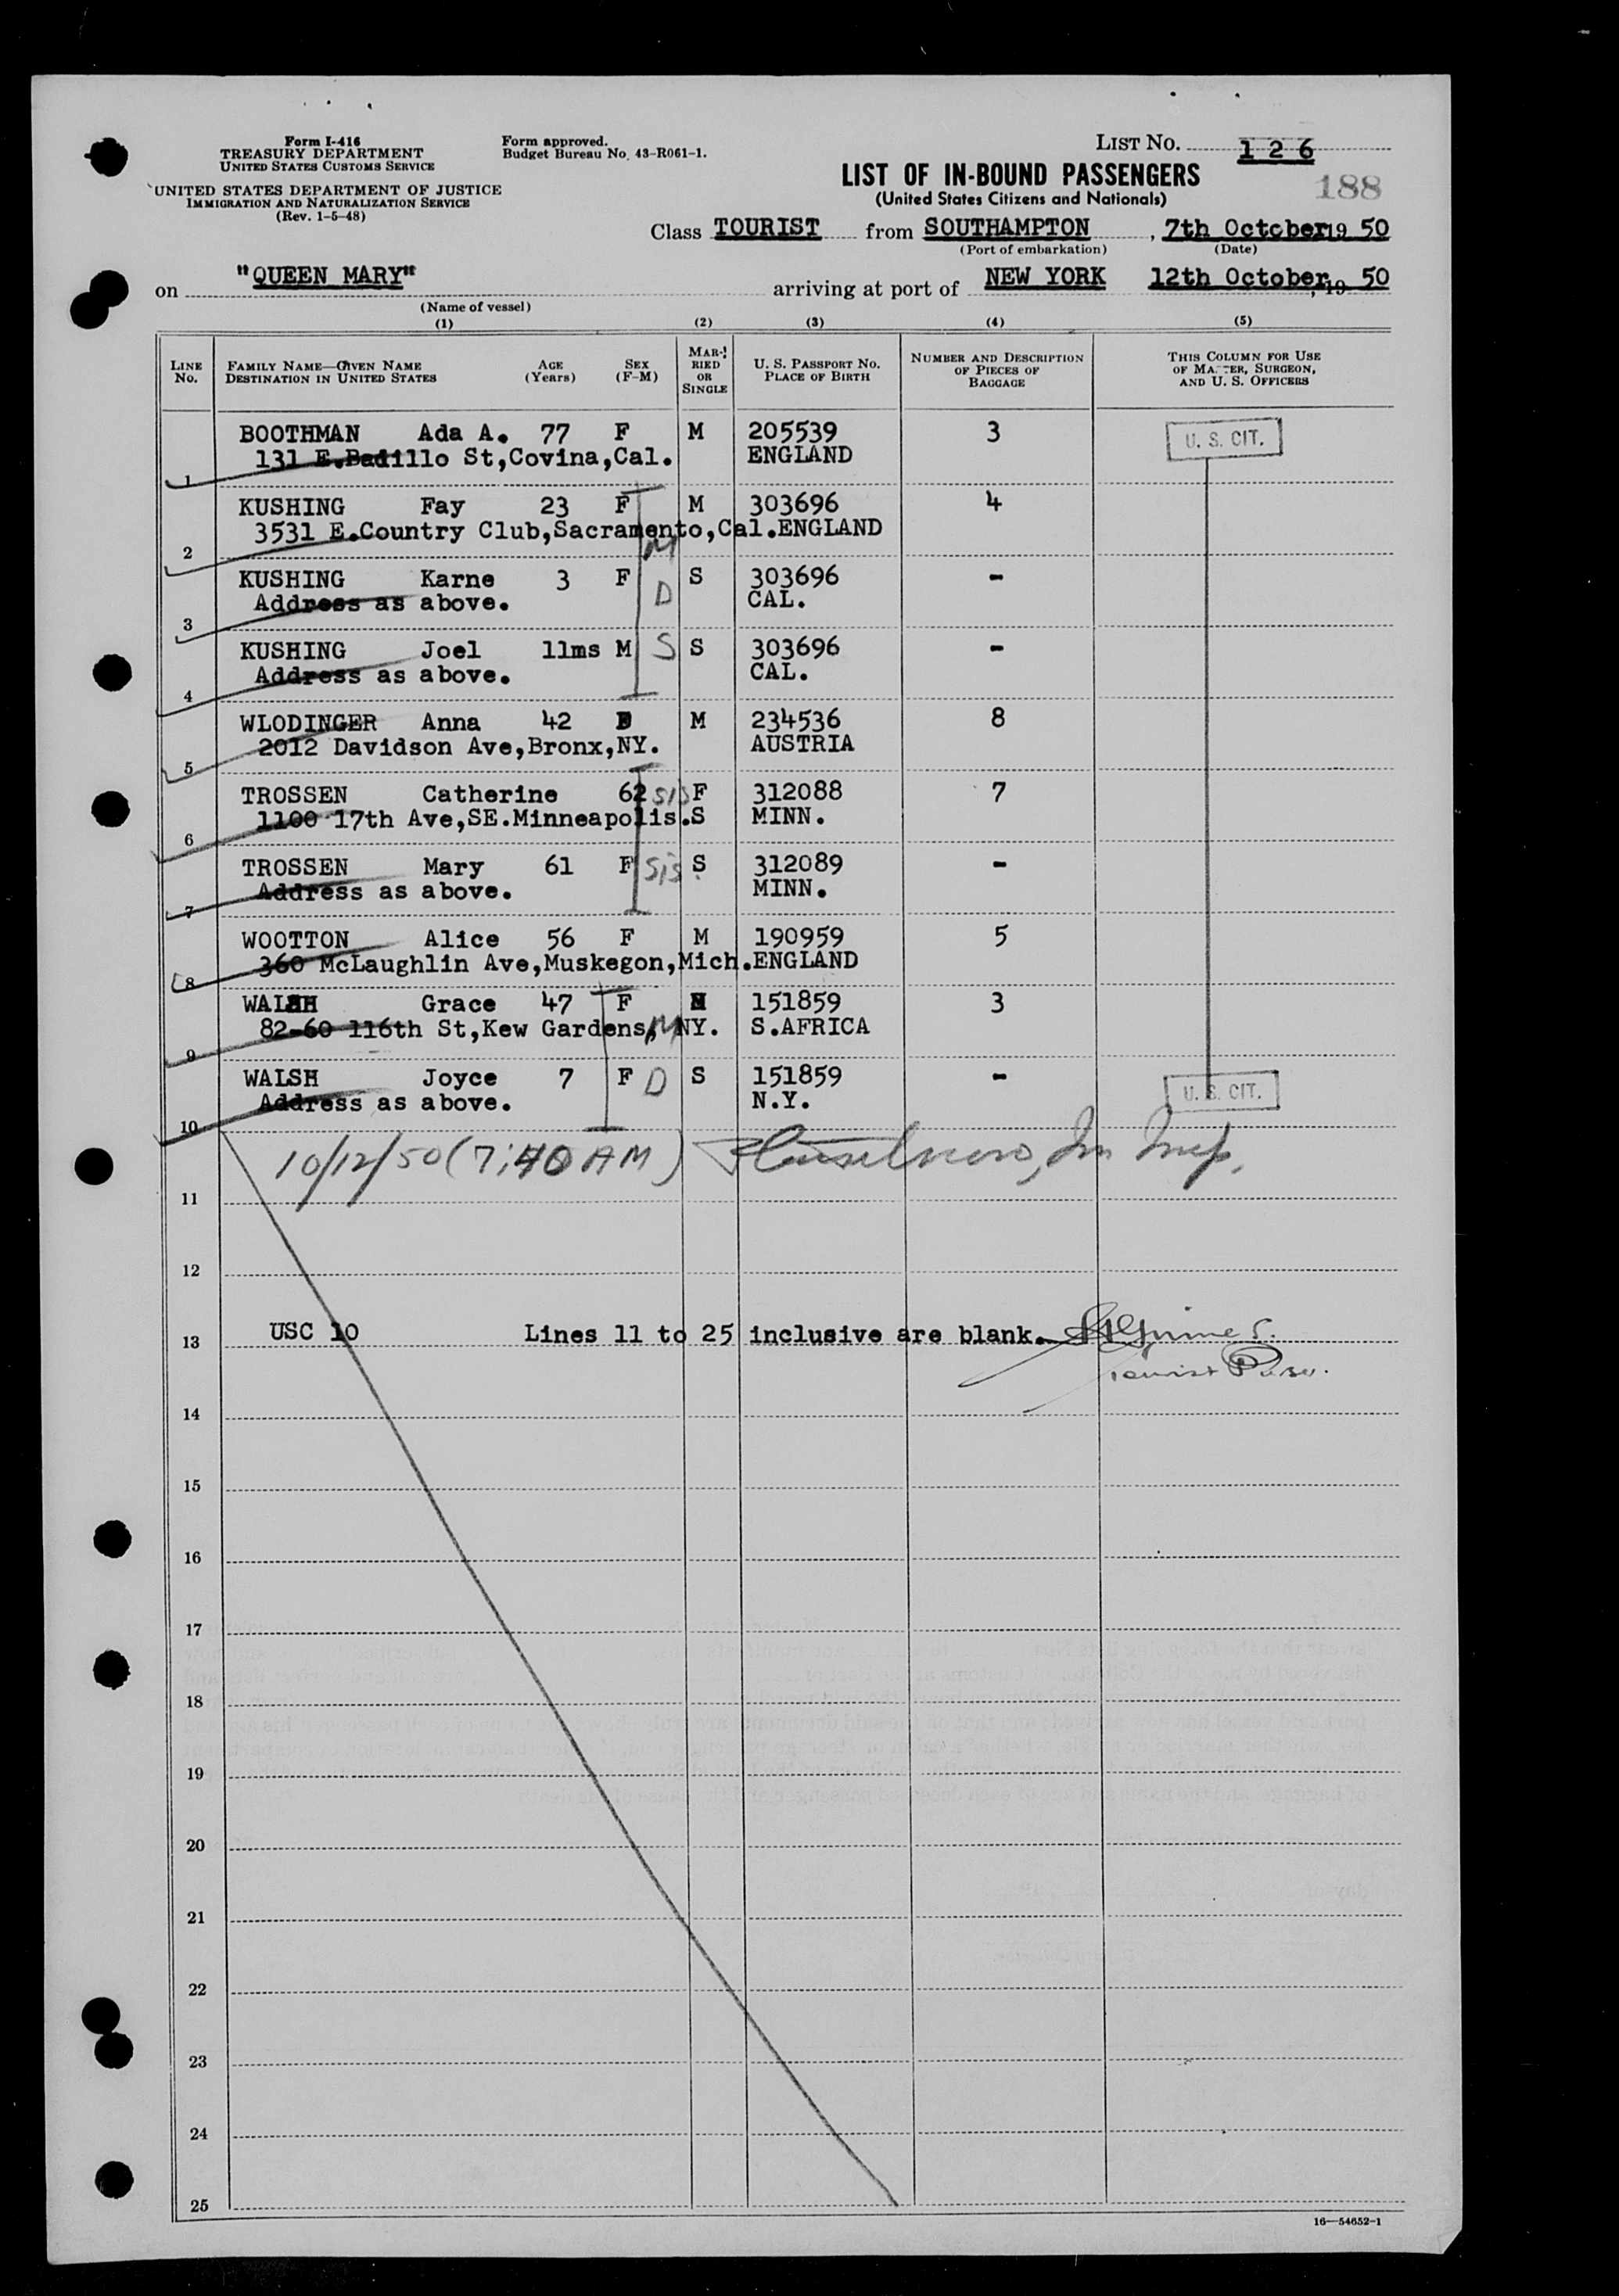 Form I-416
TREASURY DEPARTMENT
UNITED STATES CUSTOMS SERVICE
UNITED STATES DEPARTMENT OF JUSTICE
IMMIGRATION AND NATURALIZATION SERVICE
(Rev. 1-5-48)
Form approved.
Budget Bureau No. 43-R061-1.
LIST No. 126
LIST OF IN-BOUND PASSENGERS
188
(United States Citizens and Nationals)
Class TOURIST from SOUTHAMPTON, 7th October 19 50
(Port of embarkation) (Date)
on "QUEEN MARY" arriving at port of NEW YORK 12th October, 19 50
(Name of vessel)
(1) (2) (3) (4) (5)
LINE No. FAMILY NAME—GIVEN NAME DESTINATION IN UNITED STATES AGE (Years) SEX (F-M) MARRIED OR SINGLE U. S. PASSPORT NO. PLACE OF BIRTH NUMBER AND DESCRIPTION OF PIECES OF BAGGAGE THIS COLUMN FOR USE OF MASTER, SURGEON, AND U. S. OFFICERS
BOOTHMAN Ada A. 77 F M 205539 3 U. S. CIT.
1 131 E.Badillo St,Covina,Cal. ENGLAND
KUSHING Fay 23 F M 303696 4
2 3531 E.Country Club,Sacramento,Cal.ENGLAND M
KUSHING Karne 3 F D S 303696 -
3 Address as above. CAL.
KUSHING Joel 11ms M S S 303696 -
4 Address as above. CAL.
WLODINGER Anna 42 M 234536 8
5 2012 Davidson Ave,Bronx,NY. AUSTRIA
TROSSEN Catherine 62 sis F 312088 7
6 1100 17th Ave,SE.Minneapolis.S MINN.
TROSSEN Mary 61 F sis S 312089 -
7 Address as above. MINN.
WOOTTON Alice 56 F M 190959 5
8 360 McLaughlin Ave,Muskegon,Mich.ENGLAND
WALSH Grace 47 F M 151859 3
9 82-60 116th St,Kew Gardens, M NY. S.AFRICA
WALSH Joyce 7 F D S 151859 - U. S. CIT.
10 Address as above. N.Y.
10/12/50 (7:40 AM) Im Insp.
11
12
13 USC 10 Lines 11 to 25 inclusive are blank.
Tourist
14
15
16
17
18
19
20
21
22
23
24
25
16—54652-1